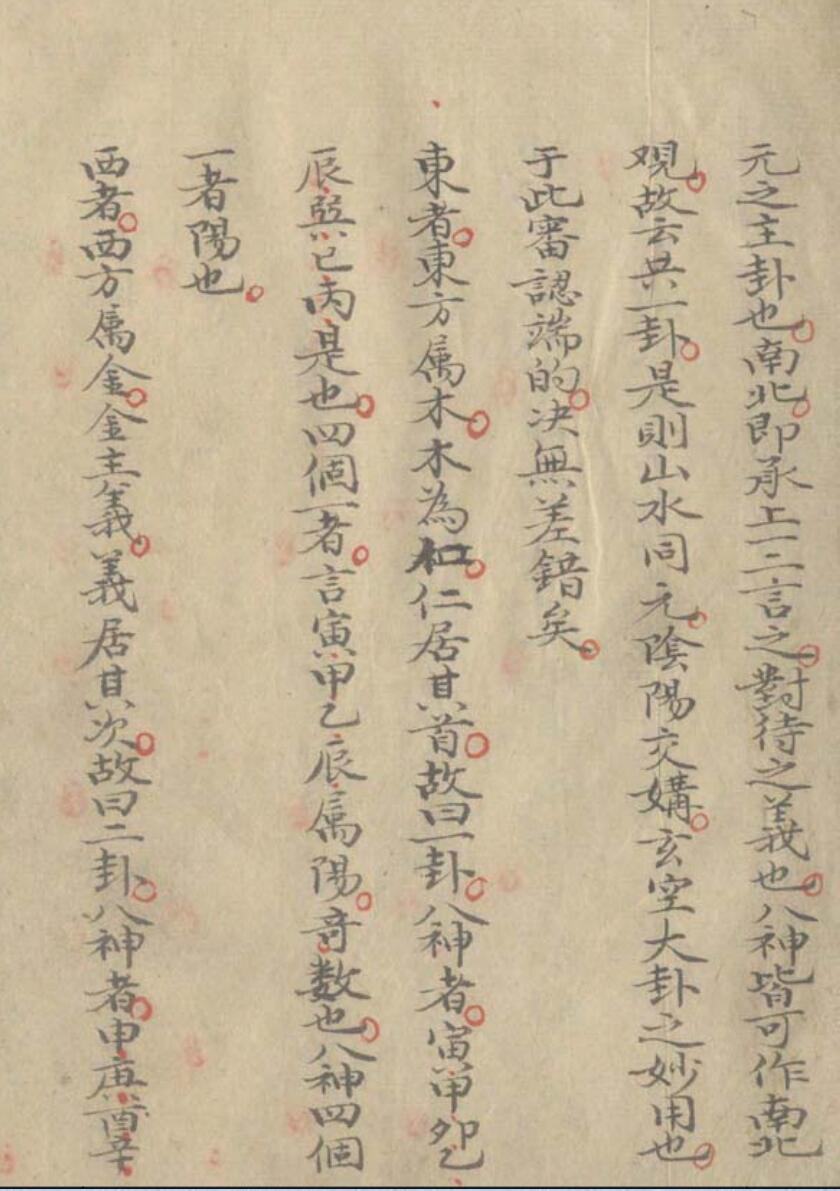 元之主卦也南北即承上一二言之對待之義也八神皆可作南北
观故云共一卦是則山水同元陰陽交媾玄空大卦之妙用也
于此審認端的决無差錯矣
東者東方属木木為仁仁居其首故曰一卦八神者寅甲卯乙
辰巽巳丙是也四個一者言寅甲乙辰属陽奇数也八神四個
一者陽也
西者西方属金金主義義居其次故曰二卦八神者申庚酉辛